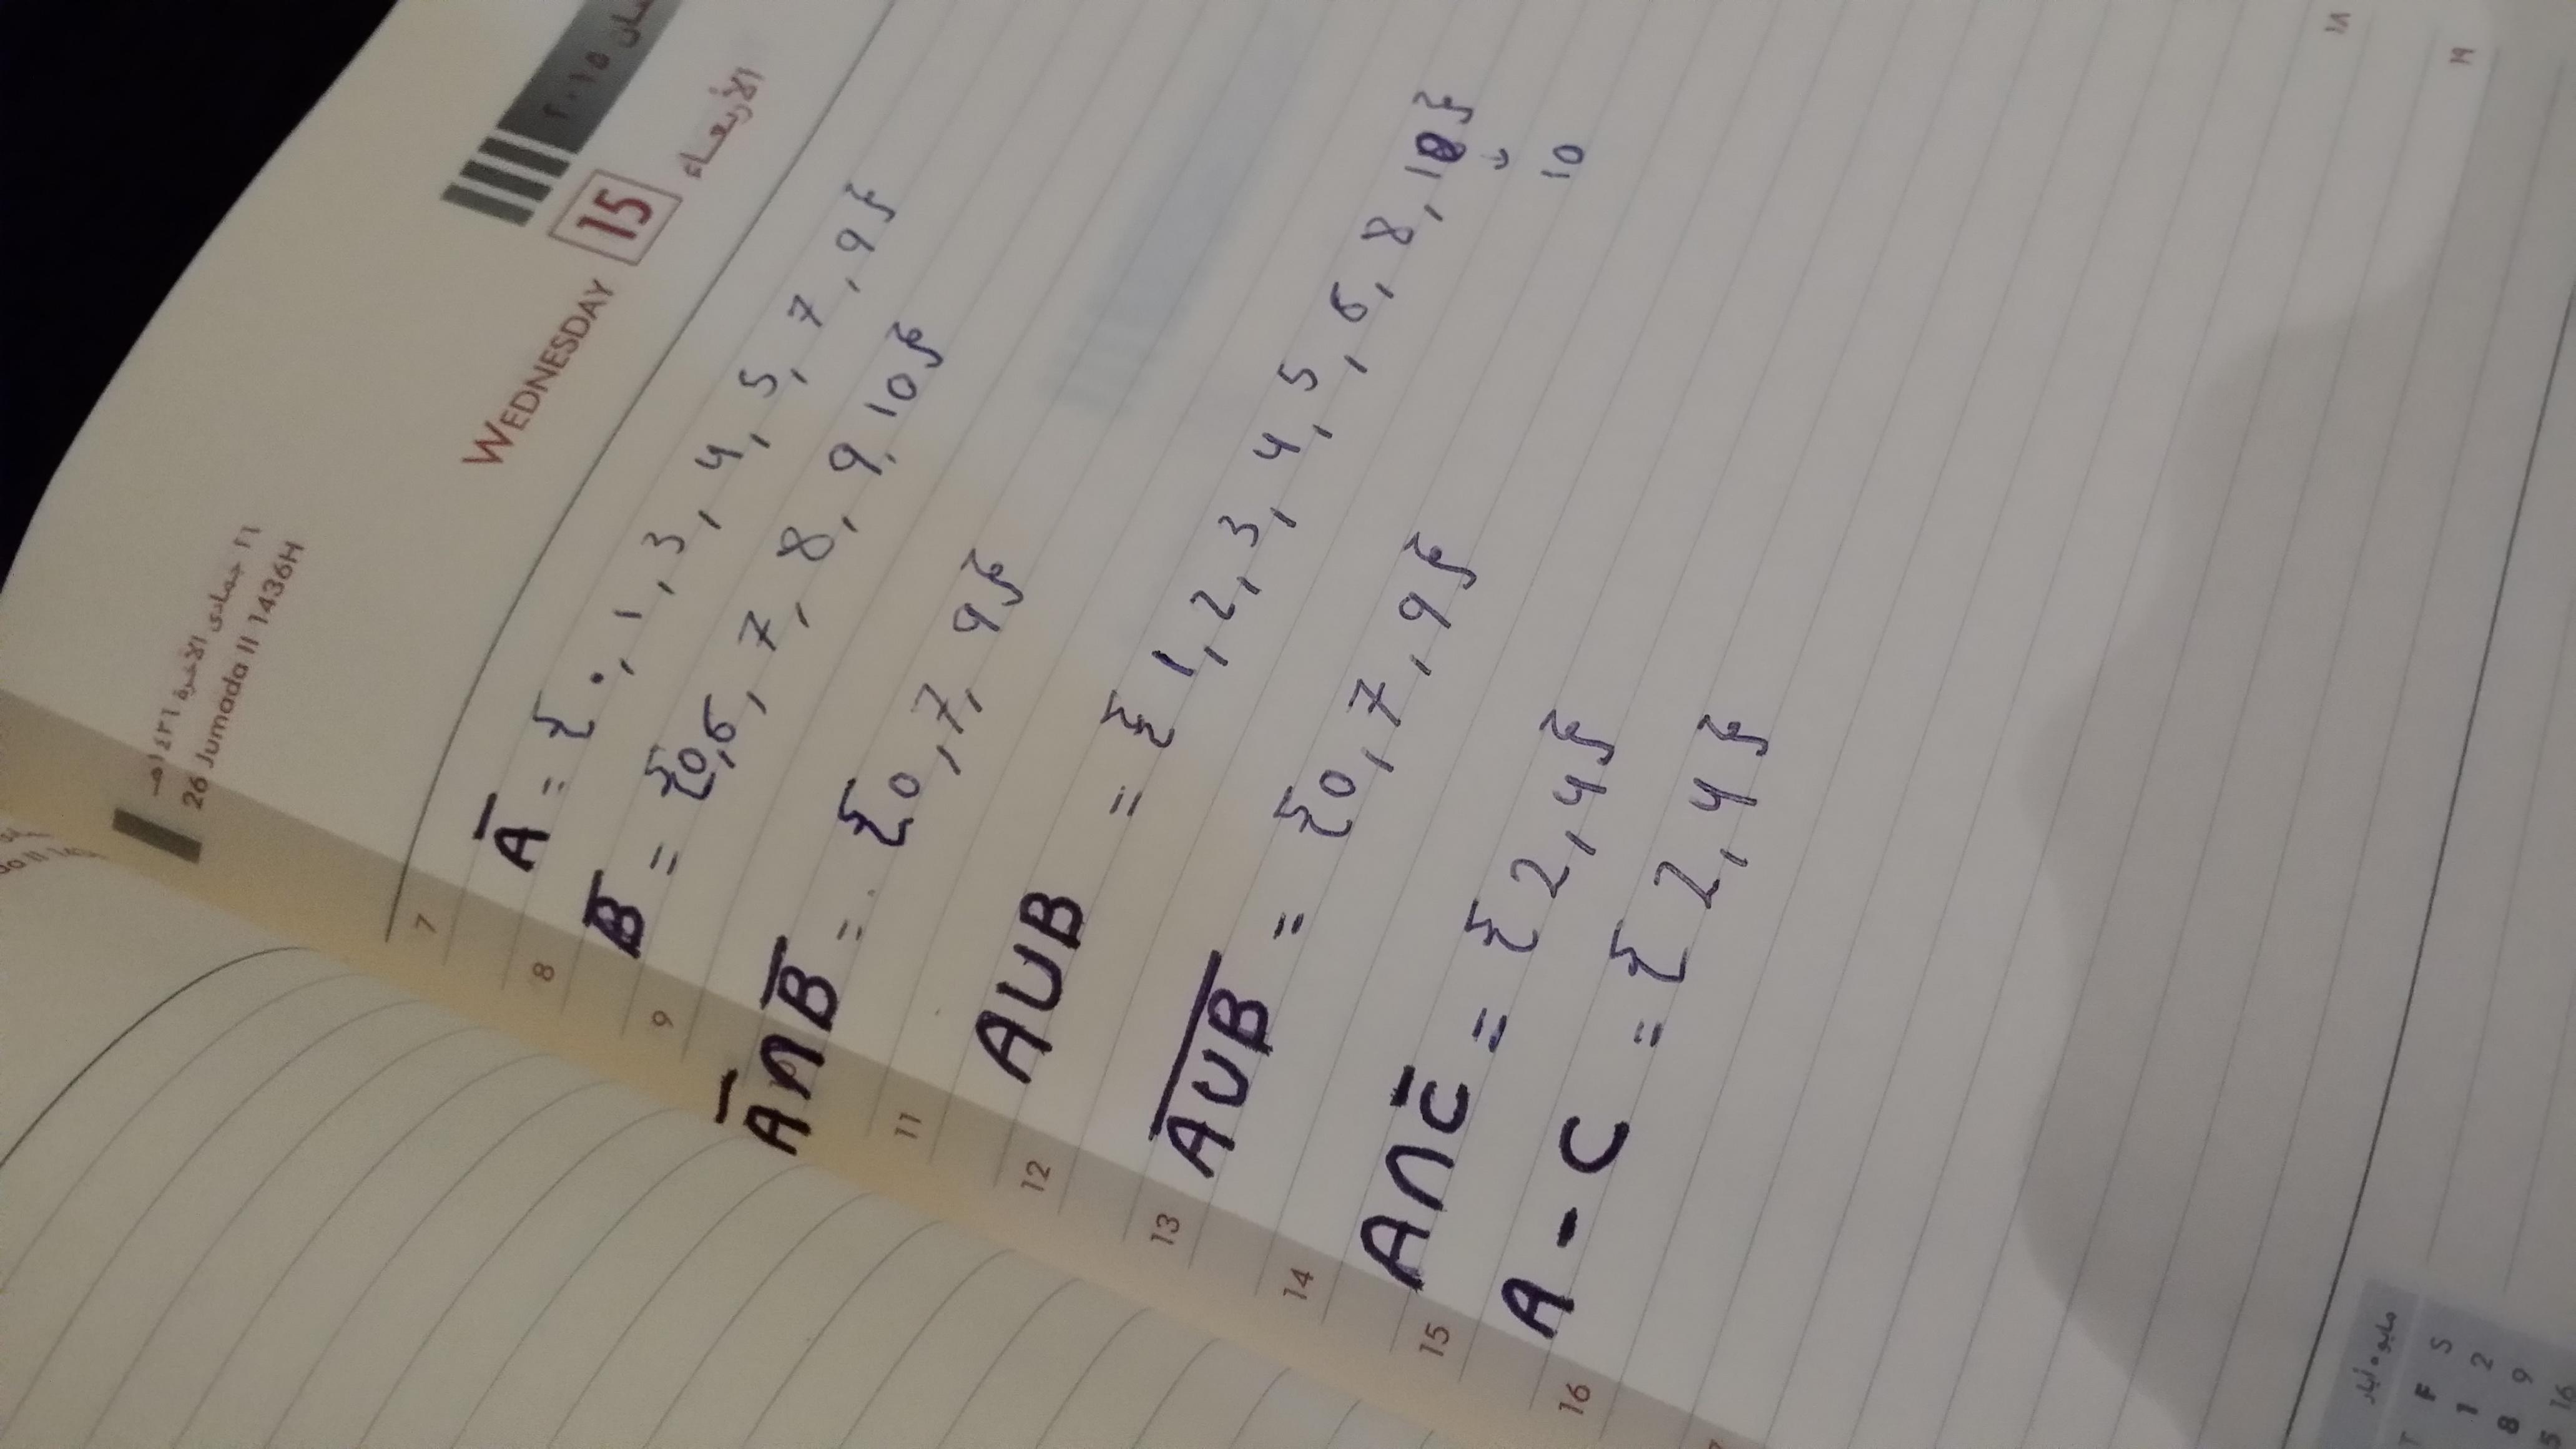 ٢٦ جمادى الآخرة ١٤٣٦هـ
26 Jumada II 1436H
WEDNESDAY 15 الأربعاء
٢٠١٥
7
8
9
11
12
13
14
15
16
A̅ = {٠, 1, 3, 4, 5, 7, 9}
B̅ = {0, 6, 7, 8, 9, 10}
A̅∩B̅ = {0, 7, 9}
A∪B = {1, 2, 3, 4, 5, 6, 8, 10}
10
A̅∪̅B̅ = {0, 7, 9}
A∩C̅ = {2, 4}
A - C = {2, 4}
١٨
١٩
مايو، أيار
T F S
1 2
8 9
5 16